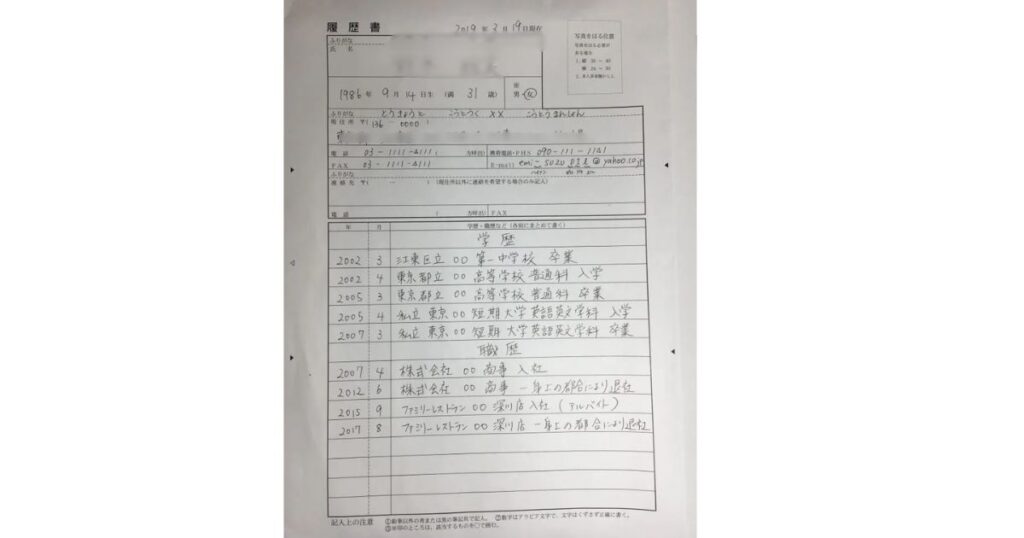 履歴書 2019年3月19日現在
写真をはる位置
ふりがな
氏名
1986年 9月 14日生 (満 31 歳) 男・女
ふりがな とうきょうと こうとうく ×× こうとうまんしょん
現住所 〒(136-0000)
電話 03-1111-4111 ( 方呼出) 携帯電話・PHS 090-111-1141
FAX 03-1111-4111 E-mail emi- suzu @yahoo.co.jp
ふりがな
連絡先 〒( - ) (現住所以外に連絡を希望する場合のみ記入)
電話 ( 方呼出) FAX
年 月 学歴・職歴など(各別にまとめて書く)
学歴
2002 3 江東区立 ○○ 第一中学校 卒業
2002 4 東京都立 ○○ 高等学校 普通科 入学
2005 3 東京都立 ○○ 高等学校 普通科 卒業
2005 4 私立 東京 ○○ 短期大学英語英文学科 入学
2007 3 私立 東京 ○○ 短期大学英語英文学科 卒業
職歴
2007 4 株式会社 ○○ 商事 入社
2012 6 株式会社 ○○ 商事 一身上の都合により退社
2015 9 ファミリーレストラン ○○ 深川店入社 (アルバイト)
2017 8 ファミリーレストラン ○○ 深川店 一身上の都合により退社
記入上の注意 ①鉛筆以外の青または黒の筆記具で記入。 ②数字はアラビア文字で、文字はくずさず正確に書く。
③※印のところは、該当するものを○で囲む。